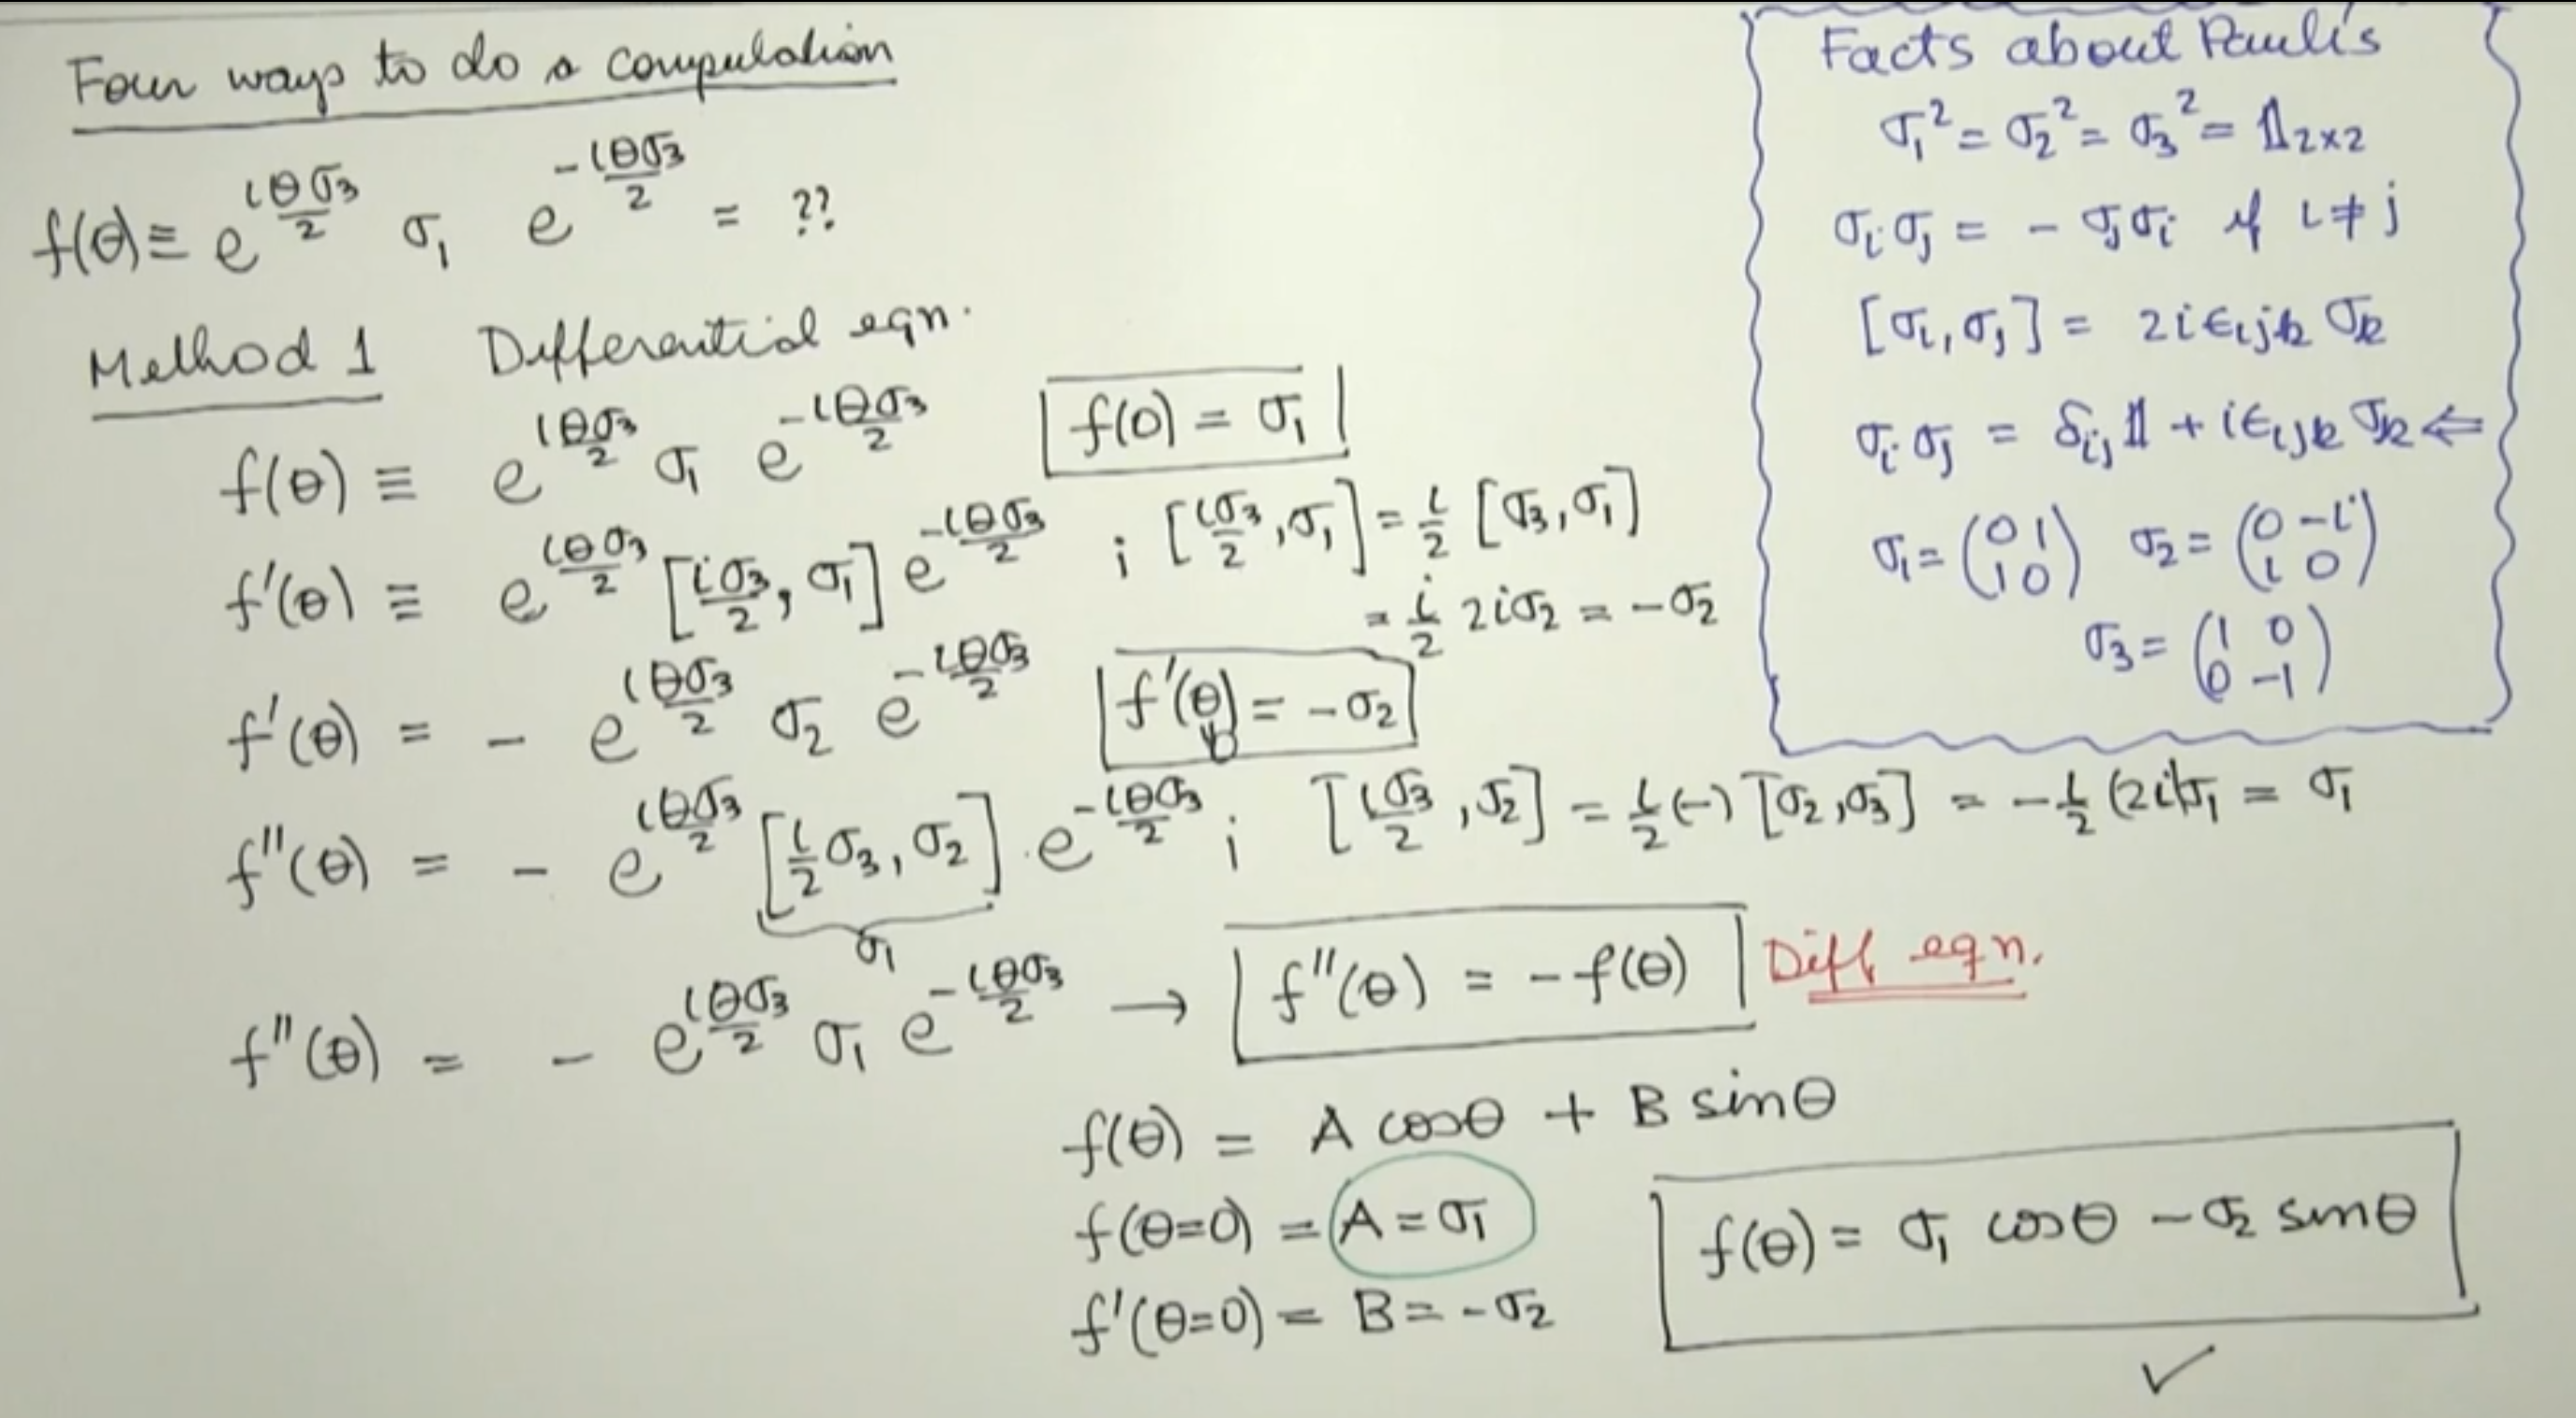 Four ways to do a computation
f(θ) ≡ e^{iθσ₃/2} σ₁ e^{-iθσ₃/2} = ??
Method 1 Differential eqn.
f(θ) ≡ e^{iθσ₃/2} σ₁ e^{-iθσ₃/2} f(0) = σ₁
f'(θ) ≡ e^{iθσ₃/2} [iσ₃/2, σ₁] e^{-iθσ₃/2} ; [iσ₃/2, σ₁] = i/2 [σ₃, σ₁]
= i/2 2iσ₂ = -σ₂
f'(θ) = - e^{iθσ₃/2} σ₂ e^{-iθσ₃/2} f'(0) = -σ₂
f''(θ) = - e^{iθσ₃/2} [i/2 σ₃, σ₂] e^{-iθσ₃/2} ; [iσ₃/2, σ₂] = i/2 (-) [σ₂, σ₃] = - i/2 (2i)σ₁ = σ₁
σ₁
f''(θ) = - e^{iθσ₃/2} σ₁ e^{-iθσ₃/2} → f''(θ) = -f(θ) Diff eqn.
f(θ) = A cosθ + B sinθ
f(θ=0) = A = σ₁
f'(θ=0) = B = -σ₂
f(θ) = σ₁ cosθ - σ₂ sinθ
✓
Facts about Pauli's
σ₁² = σ₂² = σ₃² = 𝟙₂ₓ₂
σᵢσⱼ = - σⱼσᵢ if i ≠ j
[σᵢ, σⱼ] = 2iϵᵢⱼₖ σₖ
σᵢσⱼ = δᵢⱼ𝟙 + iϵᵢⱼₖ σₖ ⇐
σ₁ = (0 1; 1 0) σ₂ = (0 -i; i 0)
σ₃ = (1 0; 0 -1)